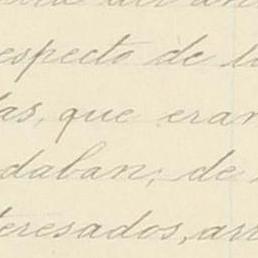 especto de l
as, que eran
daban; de
teresados, arr